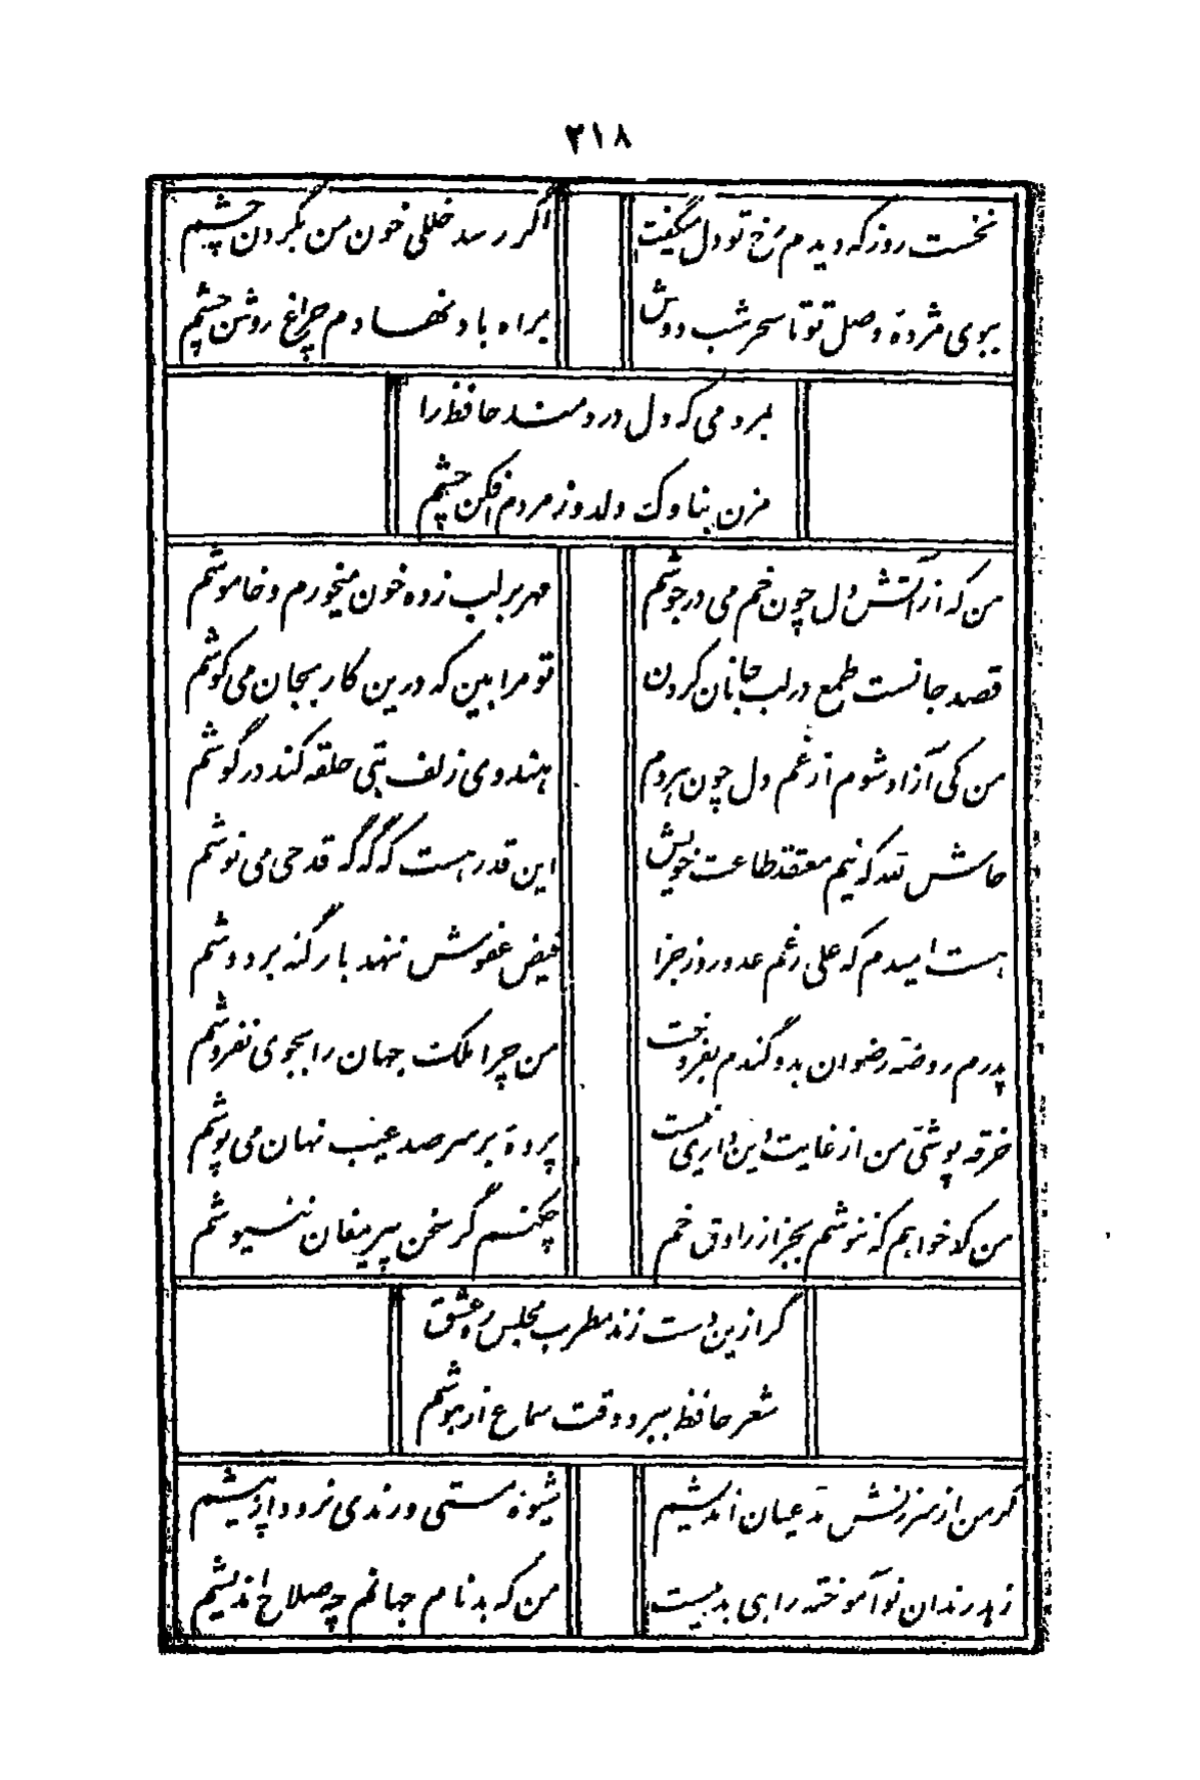 ۲۱۸
نخست روز که دیدم رخ تو دل میگفت
اگر رسد خللی خون من بگردن چشم
ببوی مژدهٔ وصل تو تا سحر شب دوش
براه باد نهادم چراغ روشن چشم
بمردمی که دل دردمند حافظ را
مزن بناوک دلدوز مردم افکن چشم
من که از آتش دل چون خم می در جوشم
مهر بر لب زده خون میخورم و خاموشم
قصد جانست طمع در لب جانان کردن
تو مرا بین که درین کار بجان می کوشم
من کی آزاد شوم از غم دل چون هر دم
هندوی زلف بتی حلقه کند در گوشم
حاش لله که نیم معتقد طاعت خویش
این قدر هست که گه گه قدحی می نوشم
هست امیدم که علی رغم عدو روز جزا
فیض عفوش ننهد بار گنه بر دوشم
پدرم روضهٔ رضوان بدو گندم بفروخت
من چرا ملک جهان را بجوی نفروشم
خرقه پوشی من از غایت دین داری نیست
پردهٔ بر سر صد عیب نهان می پوشم
من که خواهم که ننوشم بجز از راوق خم
چکنم گر سخن پیر مغان ننیوشم
گر ازین دست زند مطرب مجلس ره عشق
شعر حافظ ببرد وقت سماع از هوشم
گر من از سرزنش مدعیان اندیشم
شیوهٔ مستی و رندی نرود از پیشم
زهد رندان نوآموخته راهی بدهیست
من که بدنام جهانم چه صلاح اندیشم